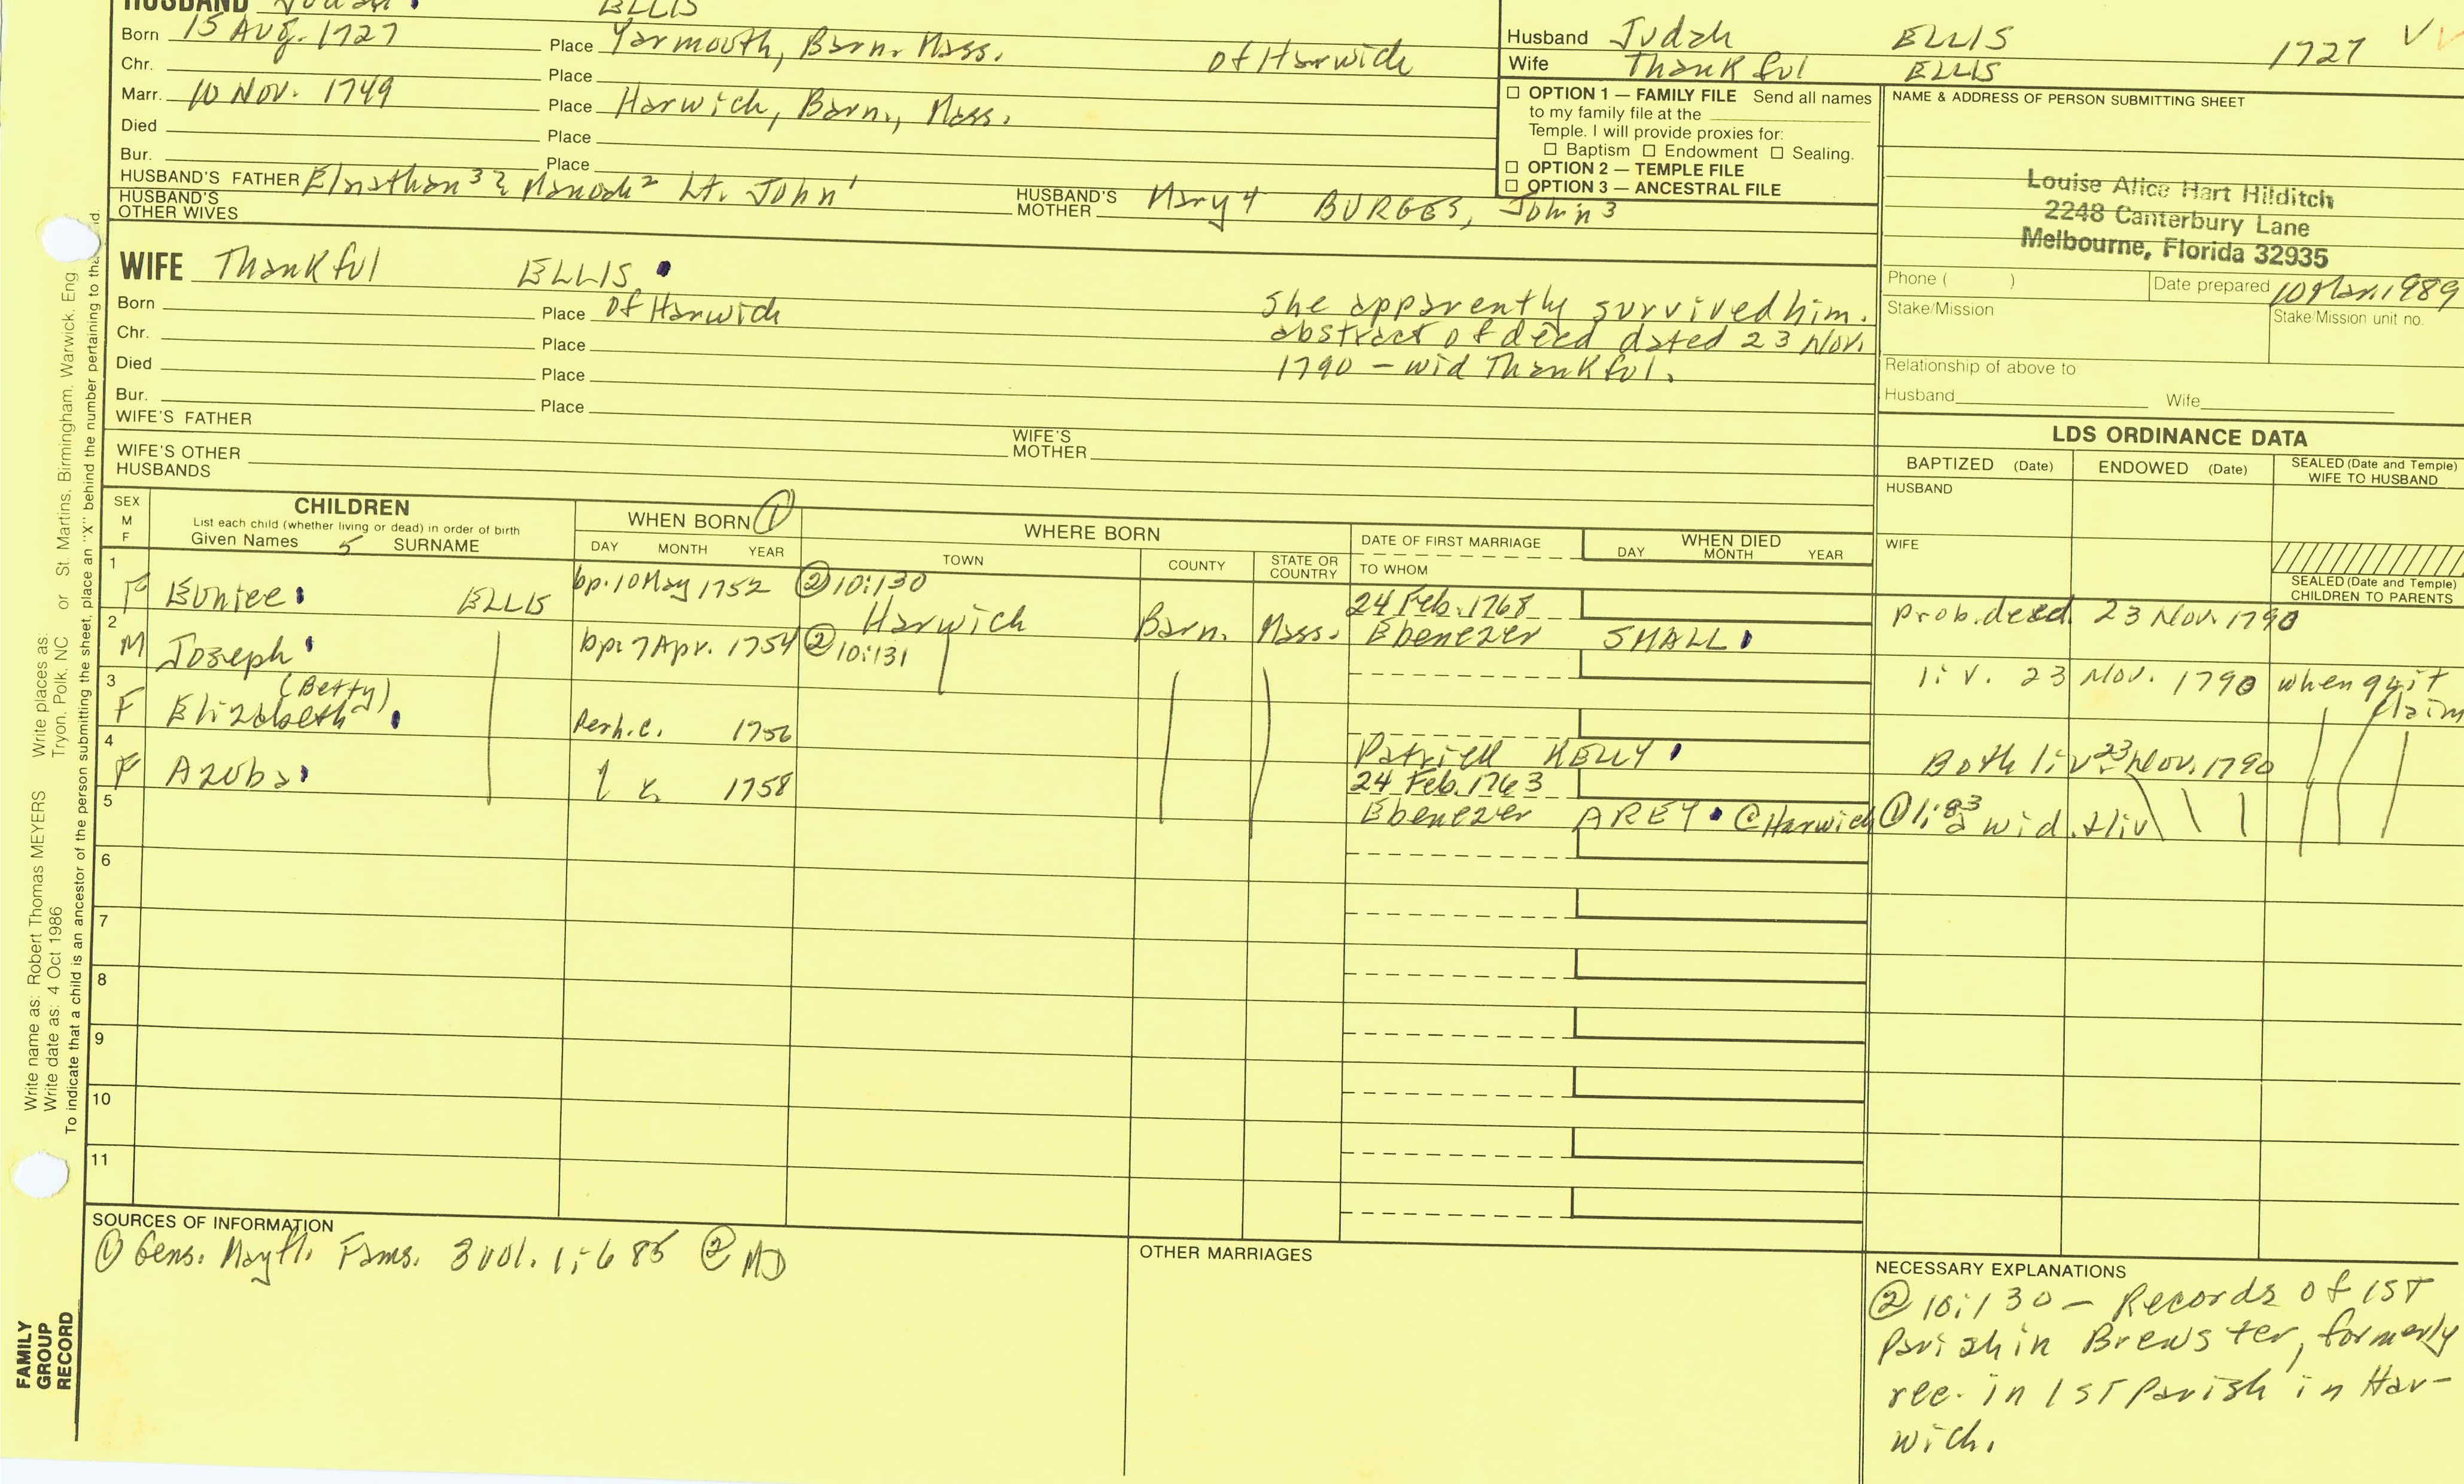 HUSBAND Judah ELLIS
Born 15 Aug. 1727 Place Yarmouth, Barn. Mass. of Harwich
Chr. Place
Marr. 10 Nov. 1749 Place Harwich, Barn., Mass.
Died Place
Bur. Place
HUSBAND'S FATHER Elnathan³ Manoah² Lt. John¹
HUSBAND'S MOTHER Mary⁴ BURGES, John³
HUSBAND'S OTHER WIVES
Husband Judah ELLIS 1727
Wife Thankful ELLIS
☐ OPTION 1 — FAMILY FILE Send all names
to my family file at the
Temple. I will provide proxies for:
☐ Baptism ☐ Endowment ☐ Sealing.
☐ OPTION 2 — TEMPLE FILE
☐ OPTION 3 — ANCESTRAL FILE
NAME & ADDRESS OF PERSON SUBMITTING SHEET
Louise Alice Hart Hilditch
2248 Canterbury Lane
Melbourne, Florida 32935
Phone ( ) Date prepared 10 Mar. 1989
Stake/Mission Stake/Mission unit no.
Relationship of above to
Husband Wife
WIFE Thankful ELLIS
Born Place of Harwich
Chr. Place
Died Place
Bur. Place
She apparently survived him.
abstract of deed dated 23 Nov.
1790 – wid Thankful.
WIFE'S FATHER
WIFE'S MOTHER
WIFE'S OTHER HUSBANDS
LDS ORDINANCE DATA
BAPTIZED (Date) ENDOWED (Date) SEALED (Date and Temple) WIFE TO HUSBAND
HUSBAND
WIFE
SEALED (Date and Temple)
CHILDREN TO PARENTS
SEX M F
CHILDREN
List each child (whether living or dead) in order of birth
Given Names 5 SURNAME
WHEN BORN ①
DAY MONTH YEAR
WHERE BORN
TOWN COUNTY STATE OR COUNTRY
DATE OF FIRST MARRIAGE
TO WHOM
WHEN DIED
DAY MONTH YEAR
1 F Eunice ELLIS bp. 10 May 1752 ② 10:130 Harwich Barn. Mass. 24 Feb. 1768 Ebenezer SMALL prob. decd. 23 Nov. 1790
2 M Joseph bp. 7 Apr. 1754 ② 10:131 liv. 23 Nov. 1790 when quit claim
3 F Elizabeth (Betty) Perh. c. 1756 Patrick KELLY Both liv 23 Nov. 1790
4 F Azuba 1758 24 Feb. 1763 Ebenezer AREY @ Harwich ① wid. & liv
5
6
7
8
9
10
11
SOURCES OF INFORMATION
① Gens. Mayfl. Fams. 3 vol. 1:685 ② MD
OTHER MARRIAGES
NECESSARY EXPLANATIONS
② 10:130 – Records of 1ST
Parish in Brewster, formerly
rec. in 1ST Parish in Har-
wich.
Write name as: Robert Thomas MEYERS Write places as: Tryon, Polk, NC or St. Martins, Birmingham, Warwick, Eng
Write date as: 4 Oct 1986
To indicate that a child is an ancestor of the person submitting the sheet, place an "X" behind the number pertaining to
FAMILY
GROUP
RECORD